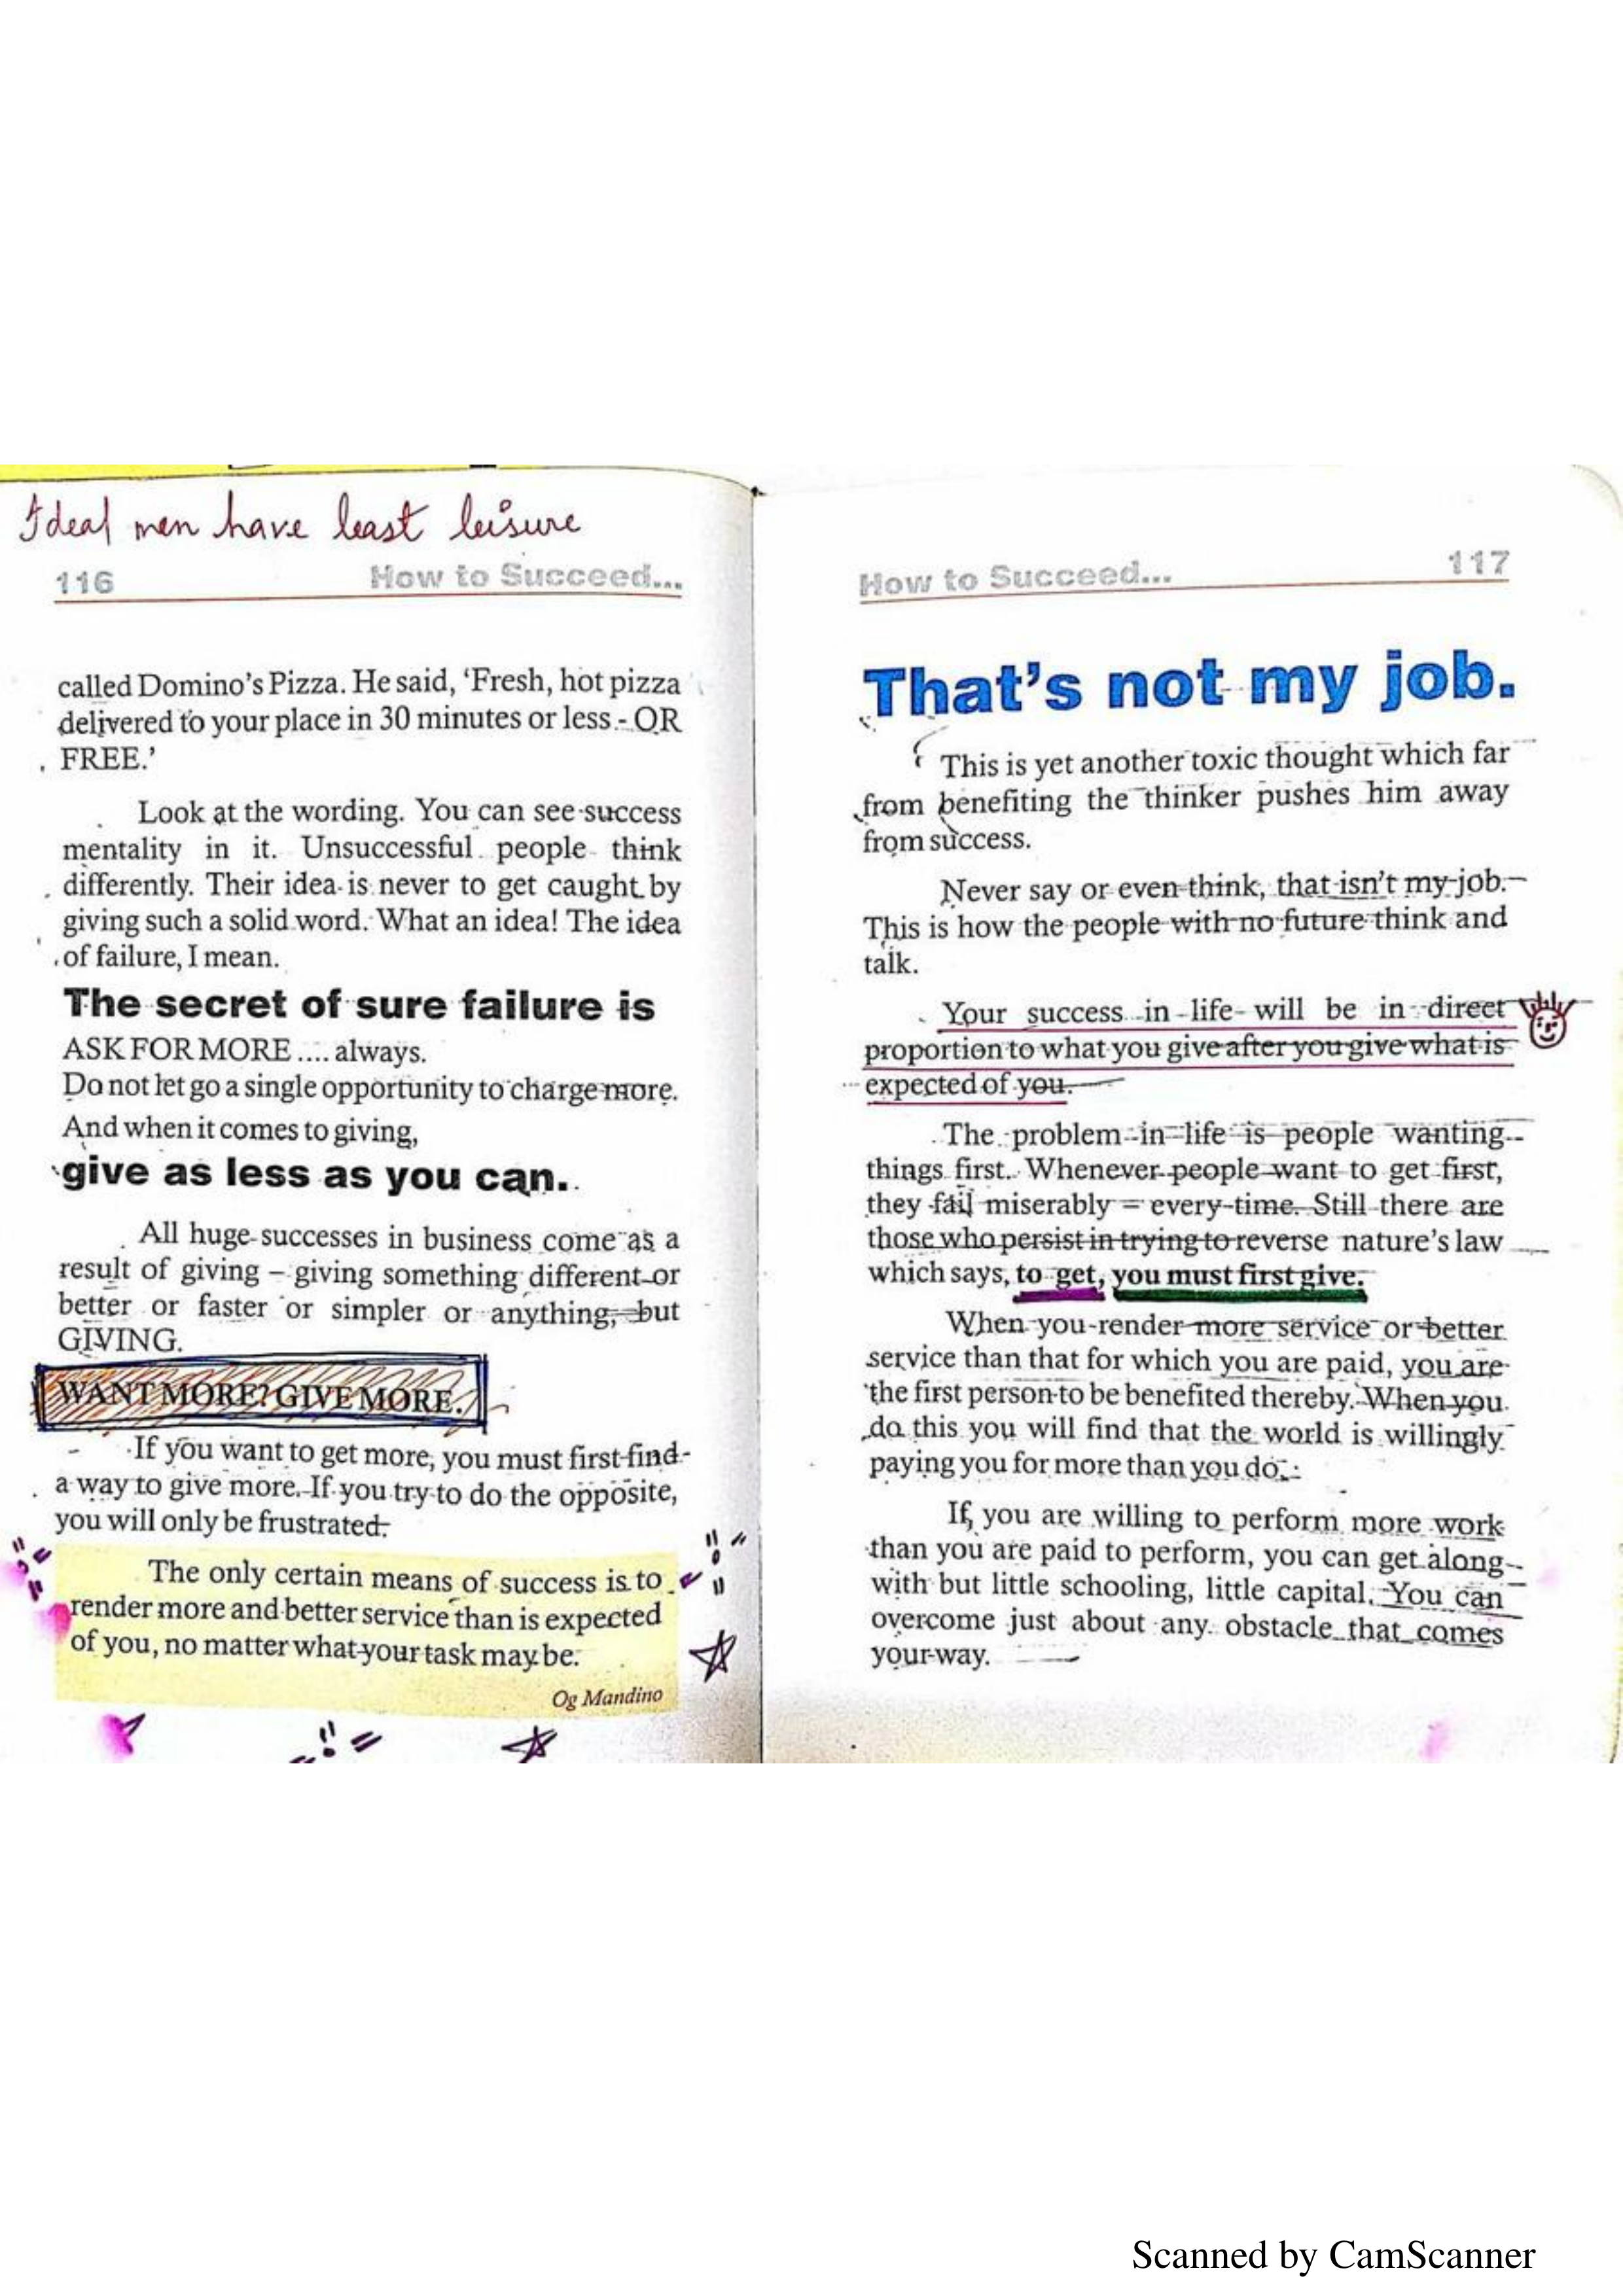 Ideal men have least leisure
116 How to Succeed...
called Domino's Pizza. He said, 'Fresh, hot pizza
delivered to your place in 30 minutes or less - OR
FREE.'
Look at the wording. You can see success
mentality in it. Unsuccessful people think
differently. Their idea is never to get caught by
giving such a solid word. What an idea! The idea
of failure, I mean.
The secret of sure failure is
ASK FOR MORE .... always.
Do not let go a single opportunity to charge more.
And when it comes to giving,
give as less as you can.
All huge successes in business come as a
result of giving – giving something different or
better or faster or simpler or anything, but
GIVING.
WANT MORE? GIVE MORE.
If you want to get more, you must first find
a way to give more. If you try to do the opposite,
you will only be frustrated.
The only certain means of success is to
render more and better service than is expected
of you, no matter what your task may be.
Og Mandino
How to Succeed... 117
That's not my job.
This is yet another toxic thought which far
from benefiting the thinker pushes him away
from success.
Never say or even think, that isn't my job.
This is how the people with no future think and
talk.
Your success in life will be in direct
proportion to what you give after you give what is
expected of you.
The problem in life is people wanting
things first. Whenever people want to get first,
they fail miserably – every time. Still there are
those who persist in trying to reverse nature's law
which says, to get, you must first give.
When you render more service or better
service than that for which you are paid, you are
the first person to be benefited thereby. When you
do this you will find that the world is willingly
paying you for more than you do.
If, you are willing to perform more work
than you are paid to perform, you can get along
with but little schooling, little capital. You can
overcome just about any obstacle that comes
your way.
Scanned by CamScanner